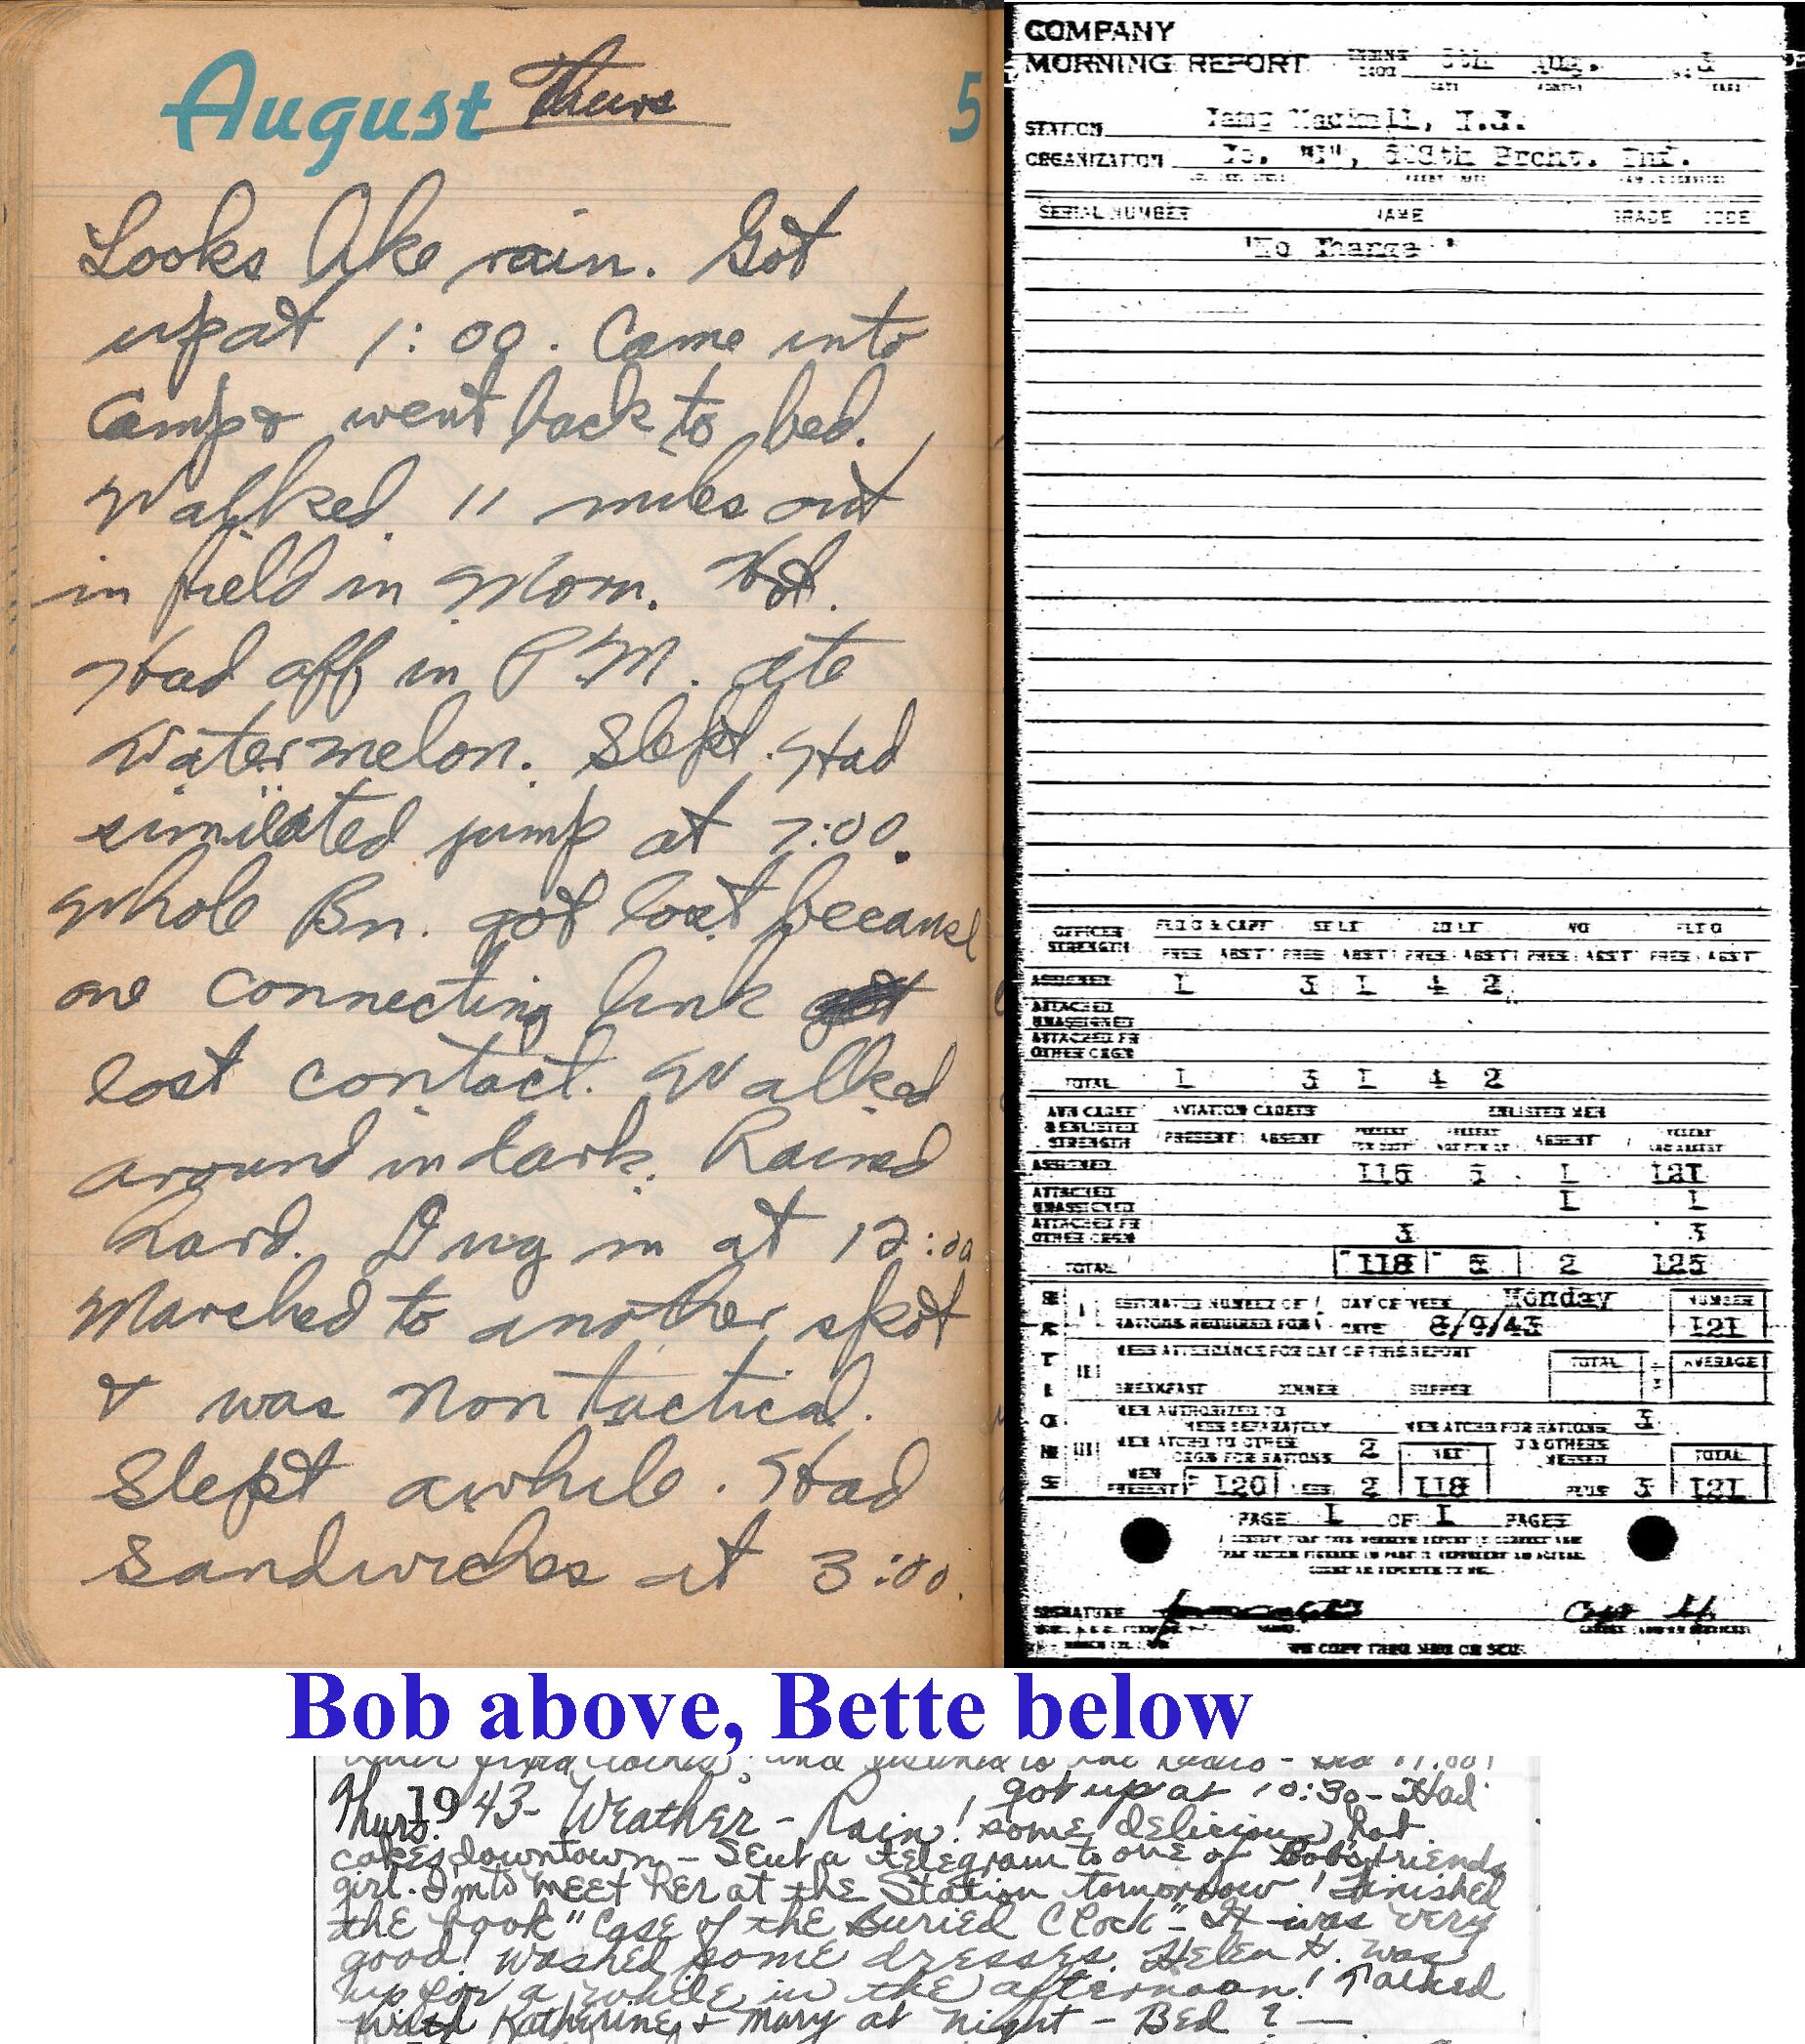 August Thurs 5
Looks like rain. Got
up at 1:00. Came into
Camp & went back to bed.
Walked 11 miles out
in field in Morn. Hot.
Had off in P.M. Ate
Watermelon. Slept. Had
similated jump at 7:00.
Whole Bn. got lost because
one connecting link
lost contact. Walked
around in dark. Rained
hard. Dug in at 12:00
Marched to another spot
& was non tactical.
Slept awhile. Had
sandwiches at 3:00.
COMPANY
MORNING REPORT ENDING 2400 Aug. 3
STATION
ORGANIZATION Inf.
SERIAL NUMBER NAME GRADE CODE
OFFICER STRENGTH FLD O & CAPT 1ST LT 2D LT WO FLT O
PRES ABST PRES ABST PRES ABST PRES ABST PRES ABST
ASSIGNED 1 3 1 4 2
ATTACHED UNASSIGNED
ATTACHED FR OTHER ORGN
TOTAL 1 3 1 4 2
AVN CADET & ENLISTED STRENGTH AVIATION CADETS ENLISTED MEN
PRESENT ABSENT ABSENT
ASSIGNED 115 5 1 121
ATTACHED UNASSIGNED 1 1
ATTACHED FR OTHER ORGN 3 3
TOTAL 118 5 2 125
ESTIMATED NUMBER OF RATIONS REQUIRED FOR DAY OF WEEK Monday NUMBER
DATE 8/9/43 121
MESS ATTENDANCE FOR DAY OF THIS REPORT TOTAL AVERAGE
BREAKFAST DINNER SUPPER
MEN AUTHORIZED TO MESS SEPARATELY MEN ATCHD FOR RATIONS 3
MEN ATCHD TO OTHER ORGN FOR RATIONS 2 NET TOTAL
MEN PRESENT 120 LESS 2 118 PLUS 3 121
PAGE 1 OF 1 PAGES
SIGNATURE
Bob above, Bette below
and listened to the Radio - Bed 11:00!
Thurs. 1943 - Weather - Rain! got up at 10:30 - Had
some delicious hot
cakes downtown - Sent a telegram to one of Bob's friends
girl. I'm to meet her at the Station tomorrow! Finished
the book "Case of the Buried Clock" - It was very
good! Washed some dresses. Helen H. was
up for a while in the afternoon! Talked
with Katherine & Mary at night - Bed ? -